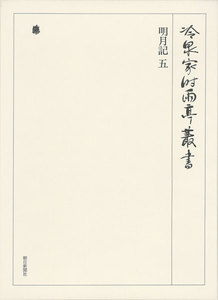 冷泉家時雨亭叢書
明月記 五
朝日新聞社